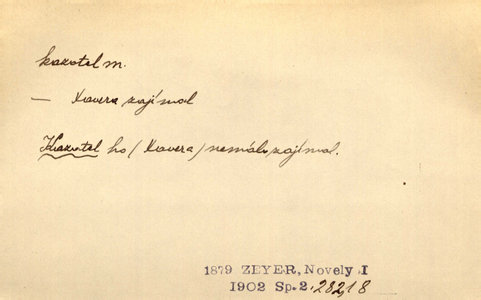 kazatel m.
— Xavera zajímal
Kazatel ho (Xavera) nemálo zajímal.
1879 ZEYER, Novely I
1902 Sp.2, 28218